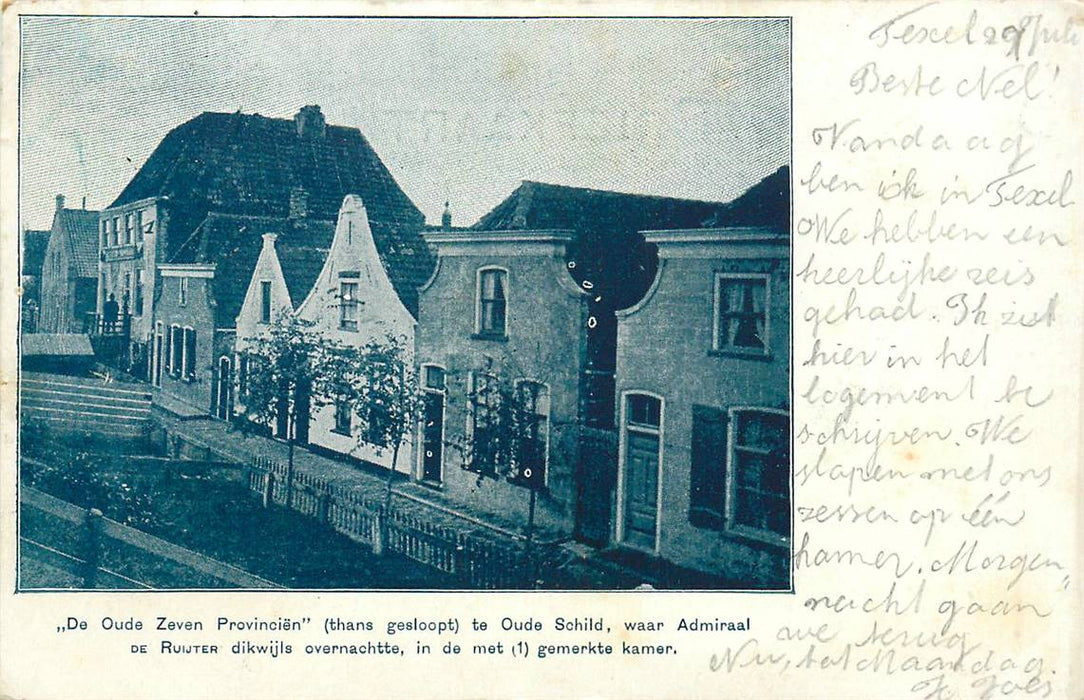 „De Oude Zeven Provinciën" (thans gesloopt) te Oude Schild, waar Admiraal
DE RUIJTER dikwijls overnachtte, in de met (1) gemerkte kamer.
Texel 29 Juli
Beste Nel!
Vandaag
ben ik in Texel
We hebben een
heerlijke reis
gehad. Ik zit
hier in het
logement be
schrijven. We
slapen met ons
zessen op één
kamer. Morgen
nacht gaan
we terug
Nu, tot Maandag.